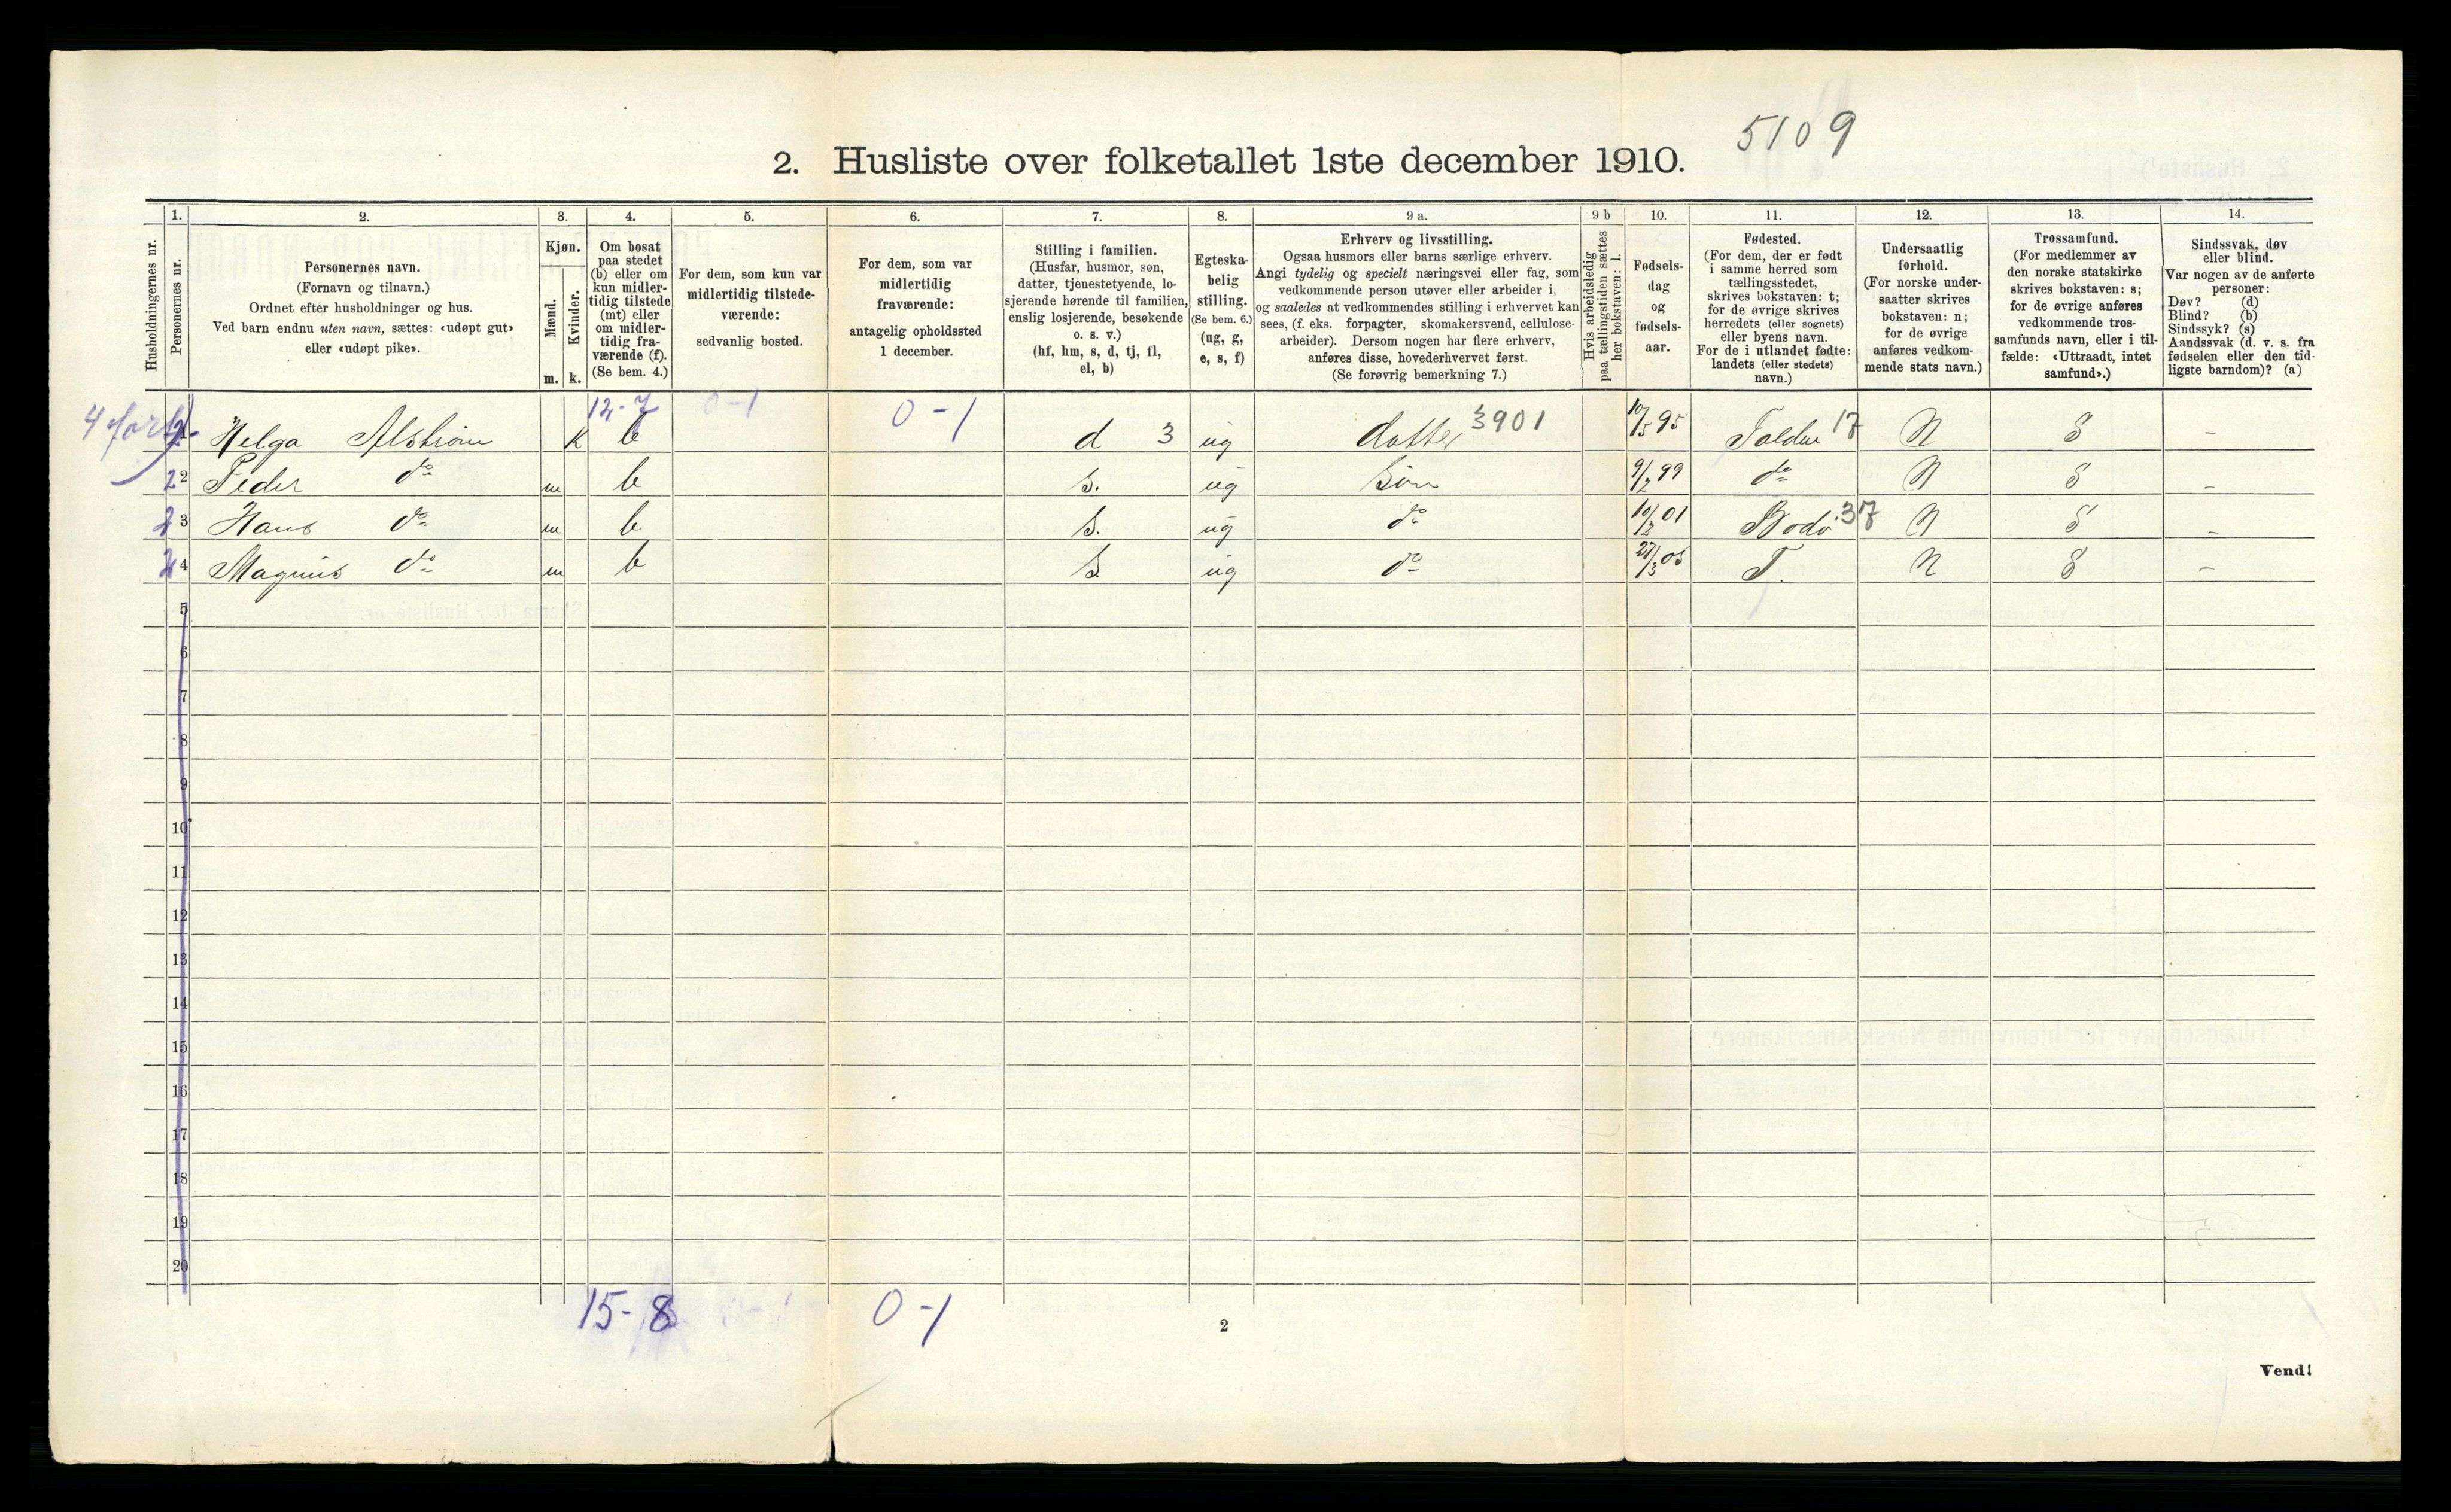 5109
2. Husliste over folketallet 1ste december 1910.
Husholdningernes nr.
1.
Personernes nr.
2.
Personernes navn.
(Fornavn og tilnavn.)
Ordnet efter husholdninger og hus.
Ved barn endnu uten navn, sættes: «udøpt gut»
eller «udøpt pike».
3.
Kjøn.
Mænd.
Kvinder.
m. k.
4.
Om bosat
paa stedet
(b) eller om
kun midler-
tidig tilstede
(mt) eller
om midler-
tidig fra-
værende (f).
(Se bem. 4.)
5.
For dem, som kun var
midlertidig tilstede-
værende:
sedvanlig bosted.
6.
For dem, som var
midlertidig
fraværende:
antagelig opholdssted
1 december.
7.
Stilling i familien.
(Husfar, husmor, søn,
datter, tjenestetyende, lo-
sjerende hørende til familien,
enslig losjerende, besøkende
o. s. v.)
(hf, hm, s, d, tj, fl,
el, b)
8.
Egteska-
belig
stilling.
(Se bem. 6.)
(ug, g,
e, s, f)
9 a.
Erhverv og livsstilling.
Ogsaa husmors eller barns særlige erhverv.
Angi tydelig og specielt næringsvei eller fag, som
vedkommende person utøver eller arbeider i,
og saaledes at vedkommendes stilling i erhvervet kan
sees, (f. eks. forpagter, skomakersvend, cellulose-
arbeider). Dersom nogen har flere erhverv,
anføres disse, hovederhvervet først.
(Se forøvrig bemerkning 7.)
9 b
Hvis arbeidsledig
paa tællingstiden sættes
her bokstaven: l.
10.
Fødsels-
dag
og
fødsels-
aar.
11.
Fødested.
(For dem, der er født
i samme herred som
tællingsstedet,
skrives bokstaven: t;
for de øvrige skrives
herredets (eller sognets)
eller byens navn.
For de i utlandet fødte:
landets (eller stedets)
navn.)
12.
Undersaatlig
forhold.
(For norske under-
saatter skrives
bokstaven: n;
for de øvrige
anføres vedkom-
mende stats navn.)
13.
Trossamfund.
(For medlemmer av
den norske statskirke
skrives bokstaven: s;
for de øvrige anføres
vedkommende tros-
samfunds navn, eller i til-
fælde: «Uttraadt, intet
samfund».)
14.
Sindssvak, døv
eller blind.
Var nogen av de anførte
personer:
Døv? (d)
Blind? (b)
Sindssyk? (s)
Aandssvak (d. v. s. fra
fødselen eller den tid-
ligste barndom)? (a)
12-7 0-1 0-1
4 forts. 1 Helga Alstrøm K b d 3 ug datter 3901 10/5 95 17 N S -
2 Peder do m b s. ug Søn 9/2 99 do N S -
3 Hans do m b s. ug do 10/2 01 Bodø 37 N S -
4 Magnus do m b s ug do 27/3 05 T. N S -
5
6
7
8
9
10
11
12
13
14
15
16
17
18
19
20
15-8 0-1
2
Vend!